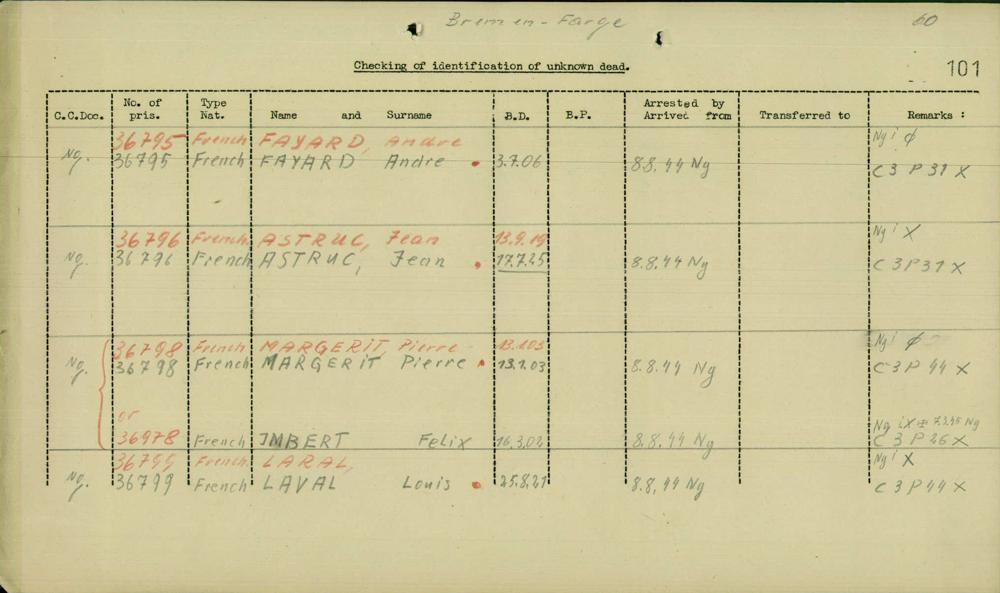 Bremen-Farge 60
Checking of identification of unknown dead. 101
C.C.Doc. No. of pris. Type Nat. Name and Surname B.D. B.P. Arrested by Arrived from Transferred to Remarks :
36795 French FAYARD, Andre Ng i ø
Ng. 36795 French FAYARD Andre . 3.7.06 8.8.44 Ng C 3 P 31 X
36796 French ASTRUC, Jean 13.9.19 Ng i X
Ng. 36796 French ASTRUC, Jean . 17.7.25 8.8.44 Ng C 3 P 31 X
36798 French MARGERIT, Pierre 13.1.03 Ng i ø
Ng. 36798 French MARGERIT Pierre . 13.1.03 8.8.44 Ng C 3 P 44 X
or Ng iX 7.3.45 Ng
36978 French IMBERT Felix 16.3.02 8.8.44 Ng C 3 P 26 X
36799 French LARAL, Ng i X
Ng. 36799 French LAVAL Louis . 25.8.21 8.8.44 Ng C 3 P 44 X